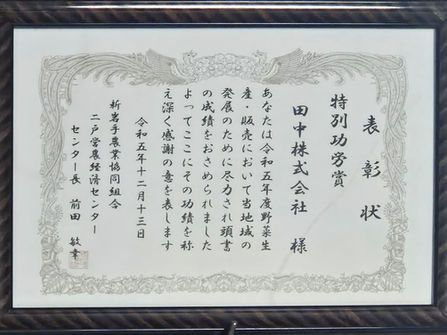 表彰状
特別功労賞
田中株式会社 様
あなたは令和五年度野菜生
産・販売において当地域の
発展のために尽力され頭書
の成績をおさめられました
よってここにその功績を称
え深く感謝の意を表します
令和五年十二月十三日
新岩手農業協同組合
二戸営農経済センター
センター長 前田 敏幸